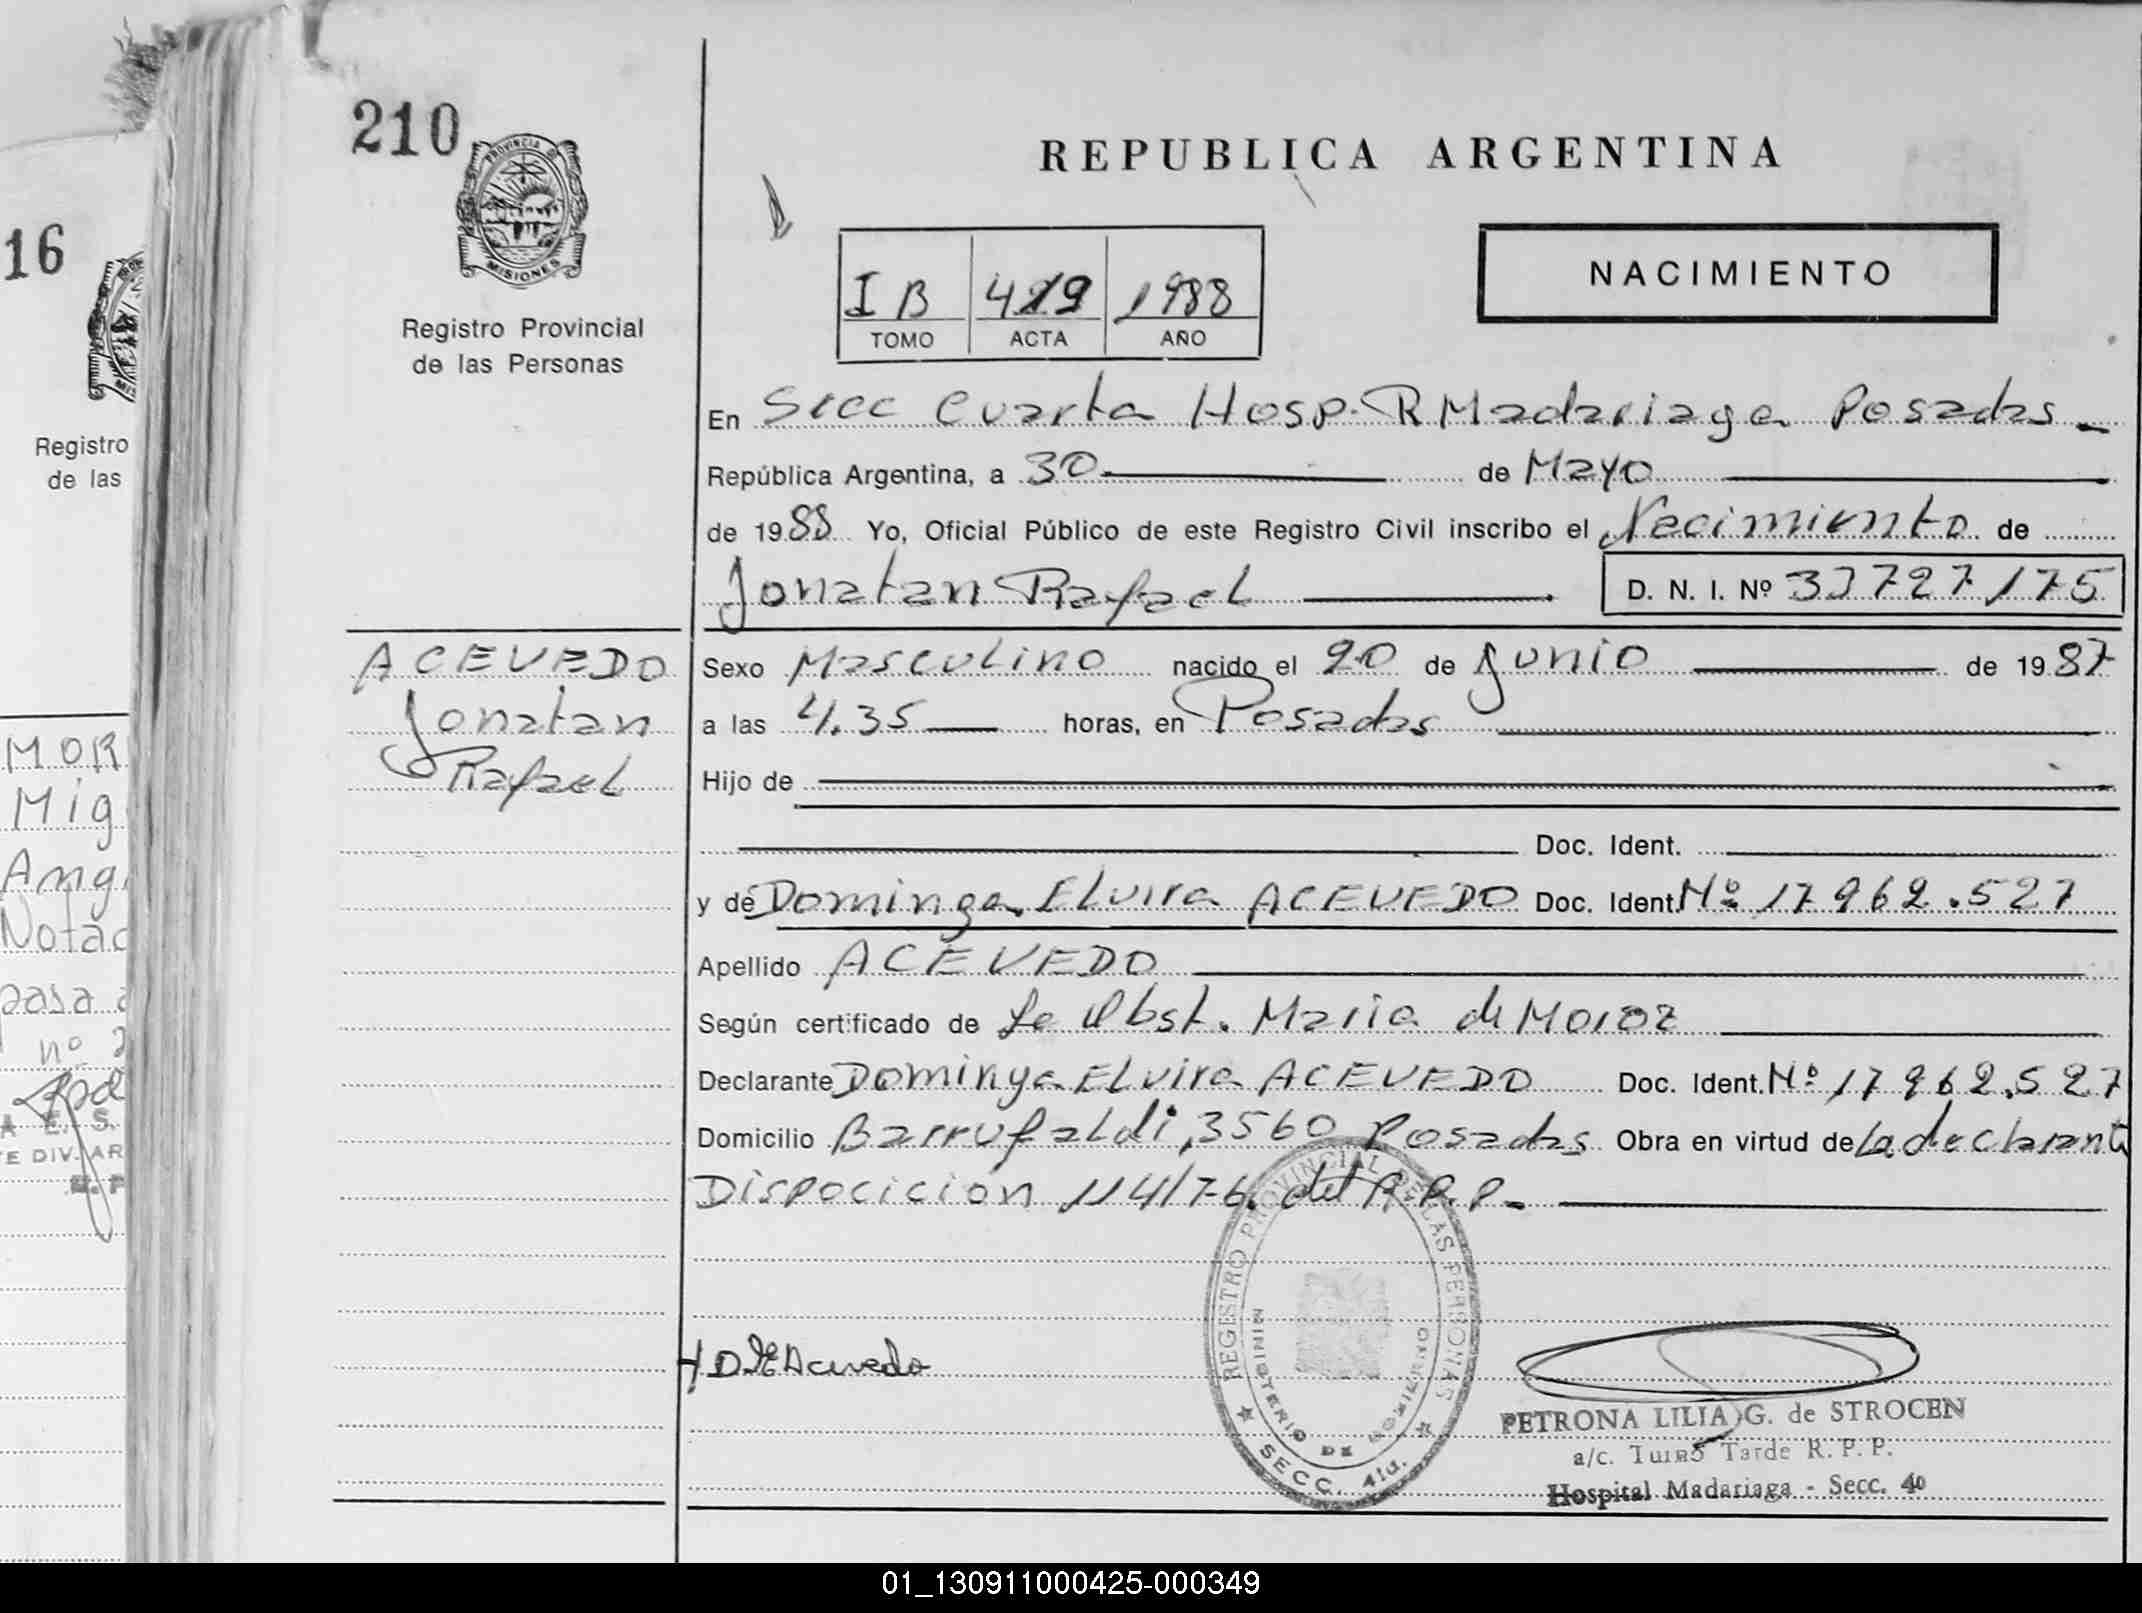 210
PROVINCIA DE
MISIONES
Registro Provincial
de las Personas
REPUBLICA ARGENTINA
NACIMIENTO
I B 1988
TOMO ACTA AÑO
En Secc Cuarta Hosp. R Madariaga Posadas -
República Argentina, a 30 de Mayo
de 1988 Yo, Oficial Público de este Registro Civil inscribo el Nacimiento de
Jonatan Rafael D. N. I. Nº 33727175
ACEVEDO
Jonatan
Rafael
Sexo Masculino nacido el 20 de Junio de 1987
a las 4.35 horas, en Posadas
Hijo de
Doc. Ident.
y de Dominga Elvira ACEVEDO Doc. Ident. Nº 17962.527
Apellido ACEVEDO
Según certificado de La Obst. Maria de Moroz
Declarante Dominga Elvira ACEVEDO Doc. Ident. Nº 17962.527
Domicilio Barrufaldi, 3560 Posadas Obra en virtud de La declarante
Disposición 114/76. del R.P.P.-
D.E Acevedo
REGISTRO PROVINCIAL DE LAS PERSONAS
MINISTERIO DE GOBIERNO
SECC. 4ta.
PETRONA LILIA G. de STROCEN
a/c. Turno Tarde R. P. P.
Hospital Madariaga - Secc. 4º
16
Registro
de las
MOR
Mig
Ang
Notac
pasa a
nº 2
A E. S.
E DIV. AR
R. P
01_130911000425-000349